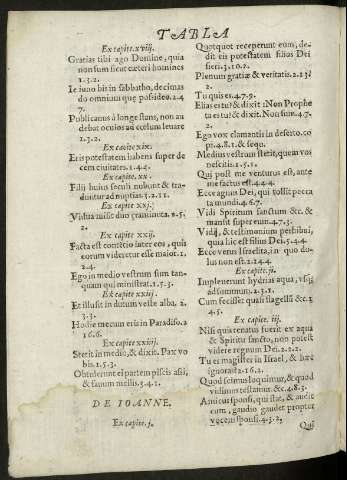 TABLA
Ex capite.xviij.
Gratias tibi ago Domine, quia
non sum sicut cæteri homines
1.3.2.
Ieiuno bis in sabbatho, decimas
do omnium quæ possideo. 2.4
7.
Publicanus à longe stans, non au
debat oculos ad cœlum leuare
1.3.2.
Ex capite xix.
Eris potestatem habens super de
cem ciuitates. 1.4.4.
Ex capite. xx.
Filij huius seculi nubunt & tra
duntur ad nuptias. 3.2.11.
Ex capite xxj.
Vidua misit duo æra minuta. 2.5.
2.
Ex capite xxij.
Facta est contētio inter eos, quis
eorum videretur esse maior. 1.
2.4.
Ego in medio vestrum sum tan-
quam qui ministrat. 1.5.3.
Ex capite xxiij.
Et illusit indutum veste alba. 2.
3.3.
Hodie mecum eris in Paradiso. 2
16.6.
Ex capite xxiiij.
Stetit in medio, & dixit. Pax vo
bis. 1.5.3.
Obtulerunt ei partem piscis assi,
& fauum mellis. 3.4.1.
DE IOANNE.
Ex capite. j.
Quotquot receperunt eum, de-
dit eis potestatem filios Dei
fieri. 3.10.2.
Plenum gratiæ & veritatis. 2.13.
2.
Tu quis es. 4.7.9.
Elias es tu? & dixit: Non Prophe
ta es tu? & dixit. Non sum. 4.7.
2.
Ego vox clamantis in deserto. co
pi. 4.8.1. & sequ.
Medius vestrum stetit, quem vos
nescitis. 1.5.1.
Qui post me venturus est, ante
me factus est. 4.4.4.
Ecce agnus Dei, qui tollit pecca
ta mundi. 4.6.7.
Vidi Spiritum sanctum &c. &
mansit super eum. 4.7.3.
Vidi, & testimonium perhibui,
quia hic est filius Dei. 5.4.4.
Ecce verus Israelita, in quo do-
lus non est. 2.14.4.
Ex capite. ij.
Impleuerunt hydrias aqua, vsq;
ad summum. 2.3.1.
Cum fecisset quasi flagellū &c. 3
4.5.
Ex capite. iij.
Nisi quis renatus fuerit ex aqua
& Spiritu sancto, non potest
videre regnum Dei. 2.2.2.
Tu es magister in Israel, & hæc
ignoras? 2.16.2.
Quod scimus loquimur, & quod
vidimus testamur. &c. 4.8.3.
Amicus sponsi, qui stat, & audit
eum, gaudio gaudet propter
vocem sponsi. 4.3.2.
Qui